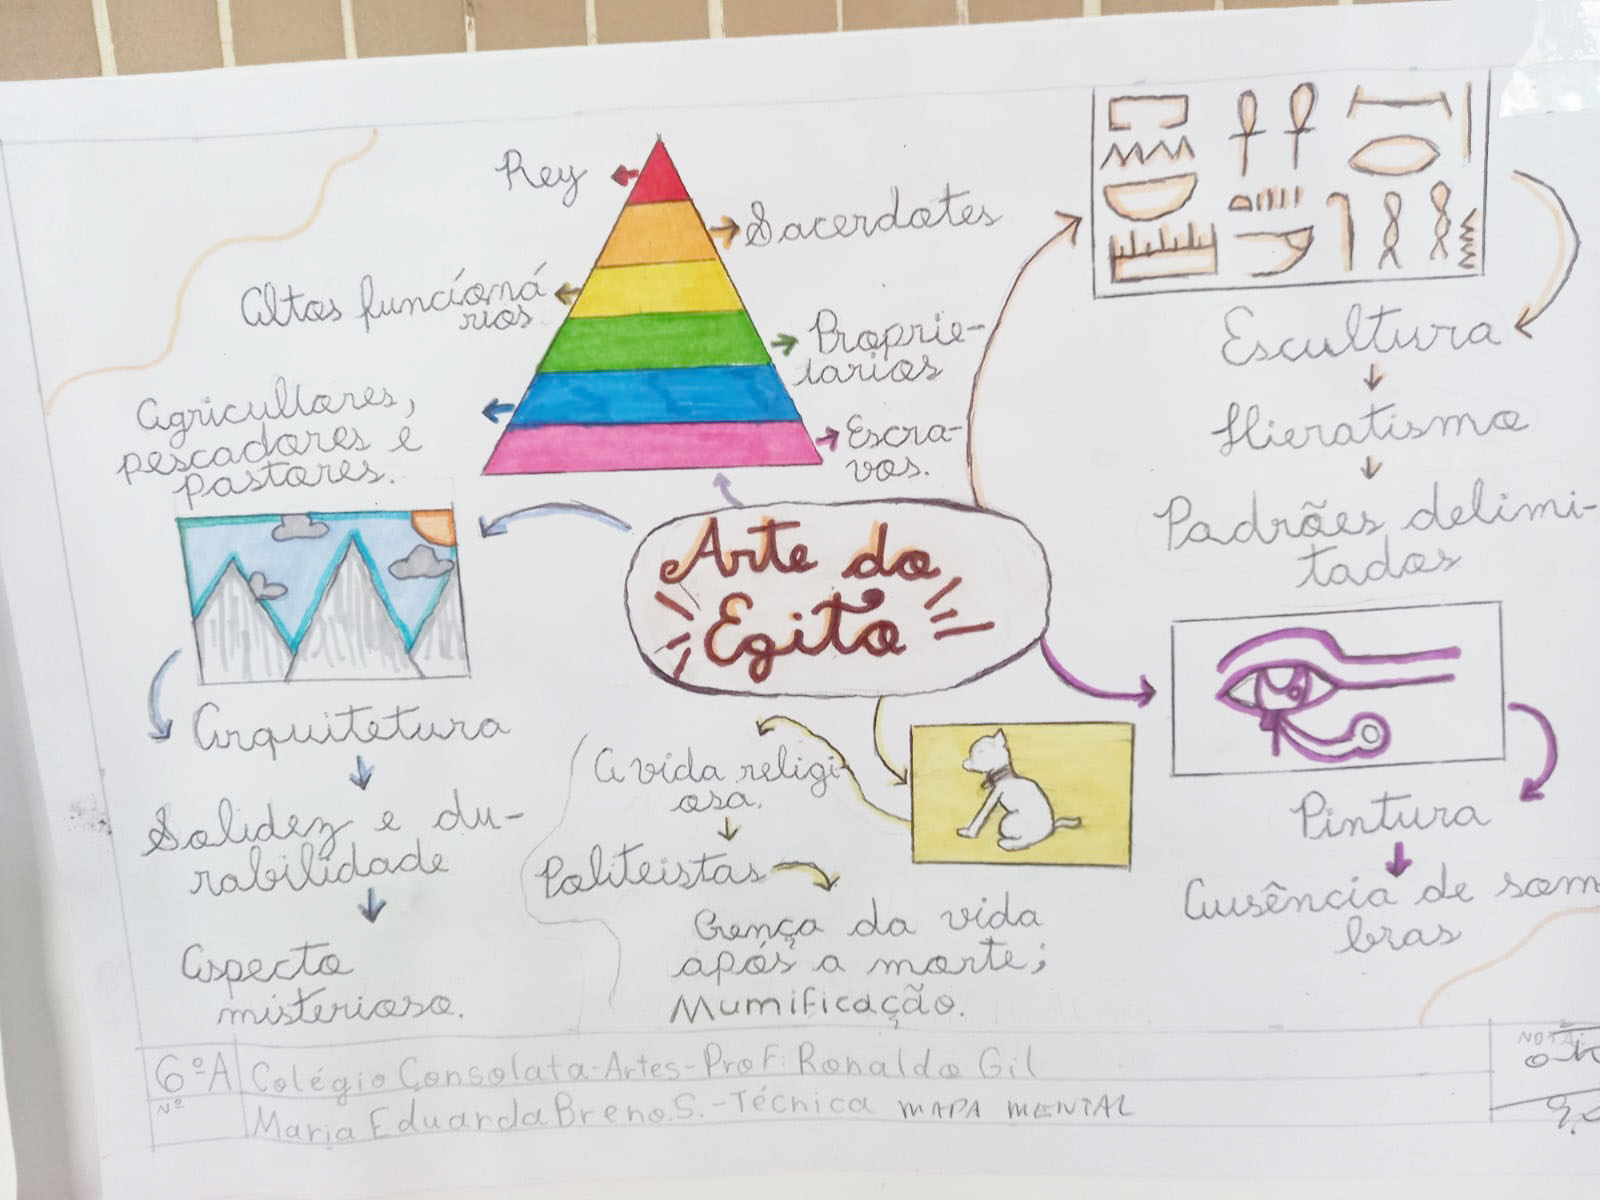 Rey
Sacerdotes
Altos funcioná
rios
Proprie-
tarios
Agricultores,
pescadores e
pastores.
Escra-
vos.
Arte do
Egito
Escultura
Hieratismo
Padrões delimi-
tados
Arquitetura
Solidez e du-
rabilidade
Aspecto
misterioso.
A vida religi-
osa.
Politeistas
Crença da vida
após a morte;
Mumificação.
Pintura
Ausência de som
bras
6ºA Colégio Consolata-Artes-Prof: Ronaldo Gil
Nº Maria Eduarda Breno.S.-Técnica MAPA MENTAL
NOTA: